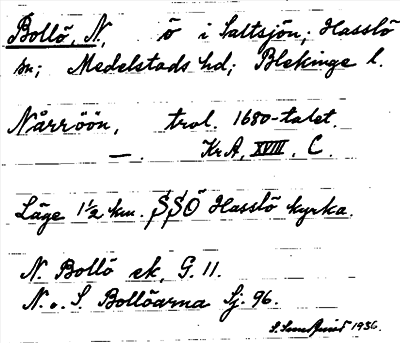 Bollö, N., ö i Saltsjön; Hasslö
sn; Medelstads hd; Blekinge l.
Nårröön, trol. 1680-talet.
—. KrA, XVIII, C.
Läge 1 1/2 km. SSO Hasslö kyrka.
N. Bollö ek. G. 11.
N. o. S. Bollöarna Sj. 96.
1936.